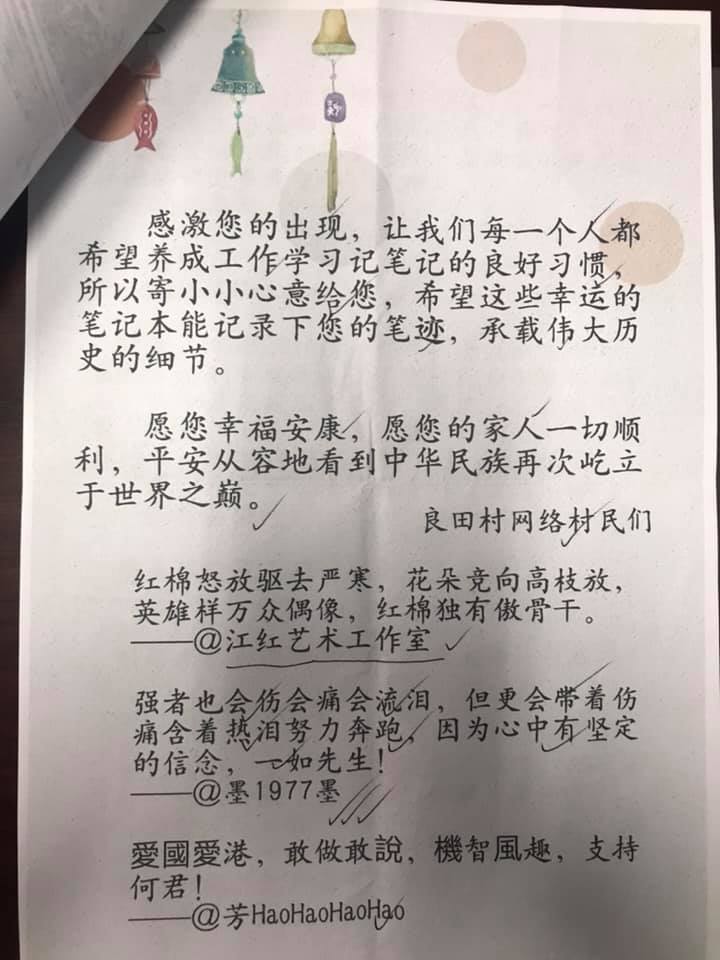 感激您的出现，让我们每一个人都
希望养成工作学习记笔记的良好习惯，
所以寄小小心意给您，希望这些幸运的
笔记本能记录下您的笔迹，承载伟大历
史的细节。
愿您幸福安康，愿您的家人一切顺
利，平安从容地看到中华民族再次屹立
于世界之巅。
良田村网络村民们
红棉怒放驱去严寒，花朵竞向高枝放，
英雄样万众偶像，红棉独有傲骨干。
——@江红艺术工作室
强者也会伤会痛会流泪，但更会带着伤
痛含着热泪努力奔跑，因为心中有坚定
的信念，一如先生！
——@墨1977墨
愛國愛港，敢做敢說，機智風趣，支持
何君！
——@芳HaoHaoHaoHao